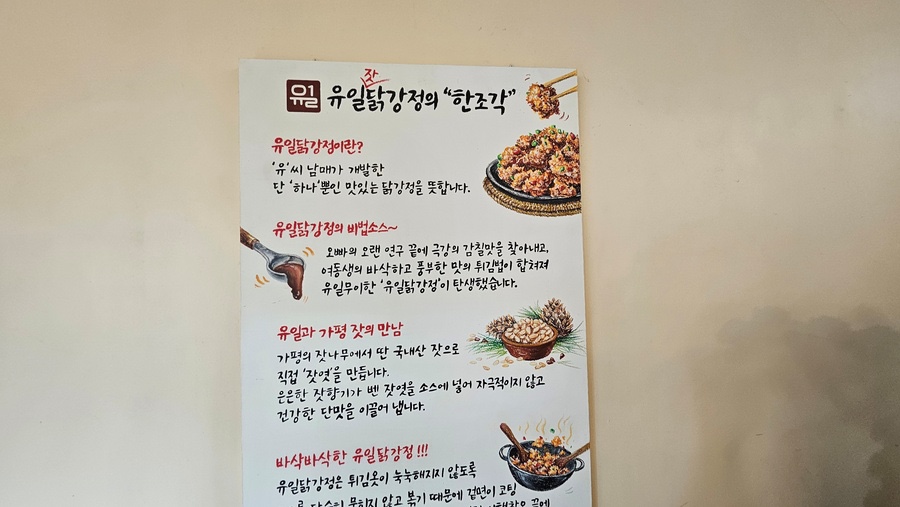 잣
유일 유일닭강정의 "한조각"
유일닭강정이란?
'유'씨 남매가 개발한
단 '하나'뿐인 맛있는 닭강정을 뜻합니다.
유일닭강정의 비법소스~
오빠의 오랜 연구 끝에 극강의 감칠맛을 찾아내고,
여동생의 바삭하고 풍부한 맛의 튀김법이 합쳐져
유일무이한 '유일닭강정'이 탄생했습니다.
유일과 가평 잣의 만남
가평의 잣나무에서 딴 국내산 잣으로
직접 '잣엿'을 만듭니다.
은은한 잣향기가 벤 잣엿을 소스에 넣어 자극적이지 않고
건강한 단맛을 이끌어 냅니다.
바삭바삭한 유일닭강정!!!
유일닭강정은 튀김옷이 눅눅해지지 않도록
단순히 묻히지 않고 볶기 때문에 겉면이 코팅
끝에